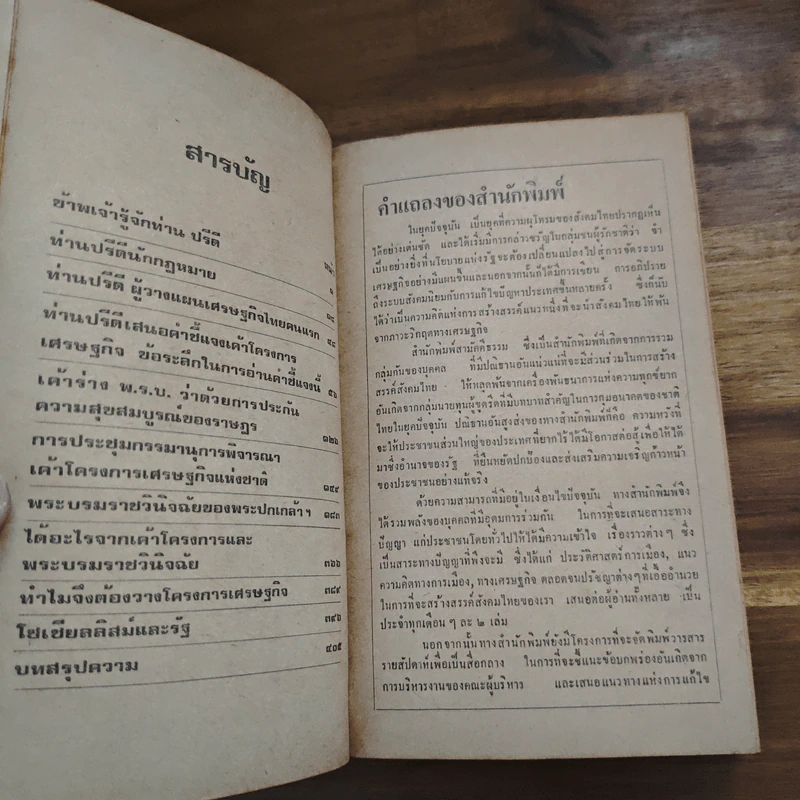 สารบัญ
หน้า
ข้าพเจ้ารู้จักท่าน ปรีดี ๑
ท่านปรีดีนักกฎหมาย
ท่านปรีดี ผู้วางแผนเศรษฐกิจไทยคนแรก
ท่านปรีดีเสนอคำชี้แจงเค้าโครงการ
เศรษฐกิจ ข้อระลึกในการอ่านคำชี้แจงนี้ ๕๖
เค้าร่าง พ.ร.บ. ว่าด้วยการประกัน
ความสุขสมบูรณ์ของราษฎร ๑๒๖
การประชุมกรรมานุการพิจารณา
เค้าโครงการเศรษฐกิจแห่งชาติ ๑๔๙
พระบรมราชวินิจฉัยของพระปกเกล้าฯ ๑๘๓
ได้อะไรจากเค้าโครงการและ
พระบรมราชวินิจฉัย ๓๖๖
ทำไมจึงต้องวางโครงการเศรษฐกิจ ๓๘๙
โซเชียลลิสม์และรัฐ ๓๙๖
บทสรุปความ ๔๐๕
คำแถลงของสำนักพิมพ์
ในยุคปัจจุบัน เป็นยุคที่ความผุโทรมของสังคมไทยปรากฏเห็น
ได้อย่างเด่นชัด และได้เริ่มมีการกล่าวขวัญในกลุ่มชนผู้รักชาติว่า จำ
เป็นอย่างยิ่งที่นโยบายแห่งรัฐจะต้องเปลี่ยนแปลงไปสู่การจัดระบบ
เศรษฐกิจอย่างมีแผนขึ้นและนอกจากนั้นก็ได้มีการเขียน การอภิปราย
ถึงระบบสังคมนิยมกับการแก้ไขปัญหาประเทศขึ้นหลายครั้ง ซึ่งก็นับ
ได้ว่าเป็นความคิดแห่งการสร้างสรรค์แนวหนึ่งที่จะนำสังคมไทยให้พ้น
จากภาวะวิกฤตทางเศรษฐกิจ
สำนักพิมพ์สามัคคีธรรม ซึ่งเป็นสำนักพิมพ์ที่เกิดจากการรวม
กลุ่มกันของบุคคล ที่มีปณิธานอันแน่วแน่ที่จะมีส่วนร่วมในการสร้าง
สรรค์สังคมไทย ให้หลุดพ้นจากเครื่องพันธนาการแห่งความทุกข์ยาก
อันเกิดจากกลุ่มนายทุนผู้ขูดรีดที่มีบทบาทสำคัญในการกุมอนาคตของชาติ
ไทยในยุคปัจจุบัน ปณิธานอันสูงส่งของทางสำนักพิมพ์ก็คือ ความหวังที่
จะให้ประชาชนส่วนใหญ่ของประเทศที่ยากไร้ได้มีโอกาสต่อสู้เพื่อให้ได้
มาซึ่งอำนาจของรัฐ ที่ยืนหยัดปกป้องและส่งเสริมความเจริญก้าวหน้า
ของประชาชนอย่างแท้จริง
ด้วยความสามารถที่มีอยู่ในเงื่อนไขปัจจุบัน ทางสำนักพิมพ์จึง
ได้รวมพลังของบุคคลที่มีอุดมการร่วมกัน ในการที่จะเสนอสาระทาง
ปัญญา แก่ประชาชนโดยทั่วไปให้ได้มีความเข้าใจ เรื่องราวต่างๆ ซึ่ง
เป็นสาระทางปัญญาที่พึงจะมี ซึ่งได้แก่ ประวัติศาสตร์การเมือง, แนว
ความคิดทางการเมือง, ทางเศรษฐกิจ ตลอดจนปรัชญาต่างๆที่เอื้ออำนวย
ในการที่จะสร้างสรรค์สังคมไทยของเรา เสนอต่อผู้อ่านทั้งหลาย เป็น
ประจำทุกเดือนๆ ละ ๒ เล่ม
นอกจากนั้นทางสำนักพิมพ์ยังมีโครงการที่จะจัดพิมพ์วารสาร
รายสัปดาห์เพื่อเป็นสื่อกลาง ในการที่จะชี้แนะข้อบกพร่องอันเกิดจาก
การบริหารงานของคณะผู้บริหาร และเสนอแนวทางแห่งการแก้ไข